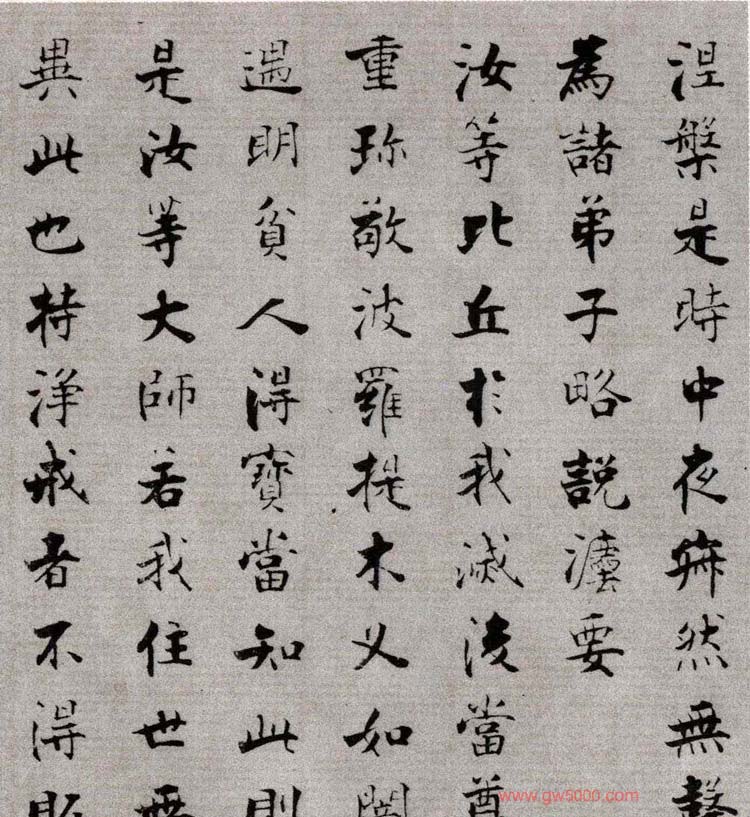 涅槃是時中夜寂然無聲
為諸弟子略說法要
汝等比丘於我滅後當尊
重珍敬波羅提木叉如闇
遇明貧人得寶當知此則
是汝等大師若我住世無
異此也持淨戒者不得販
www.gw5000.com